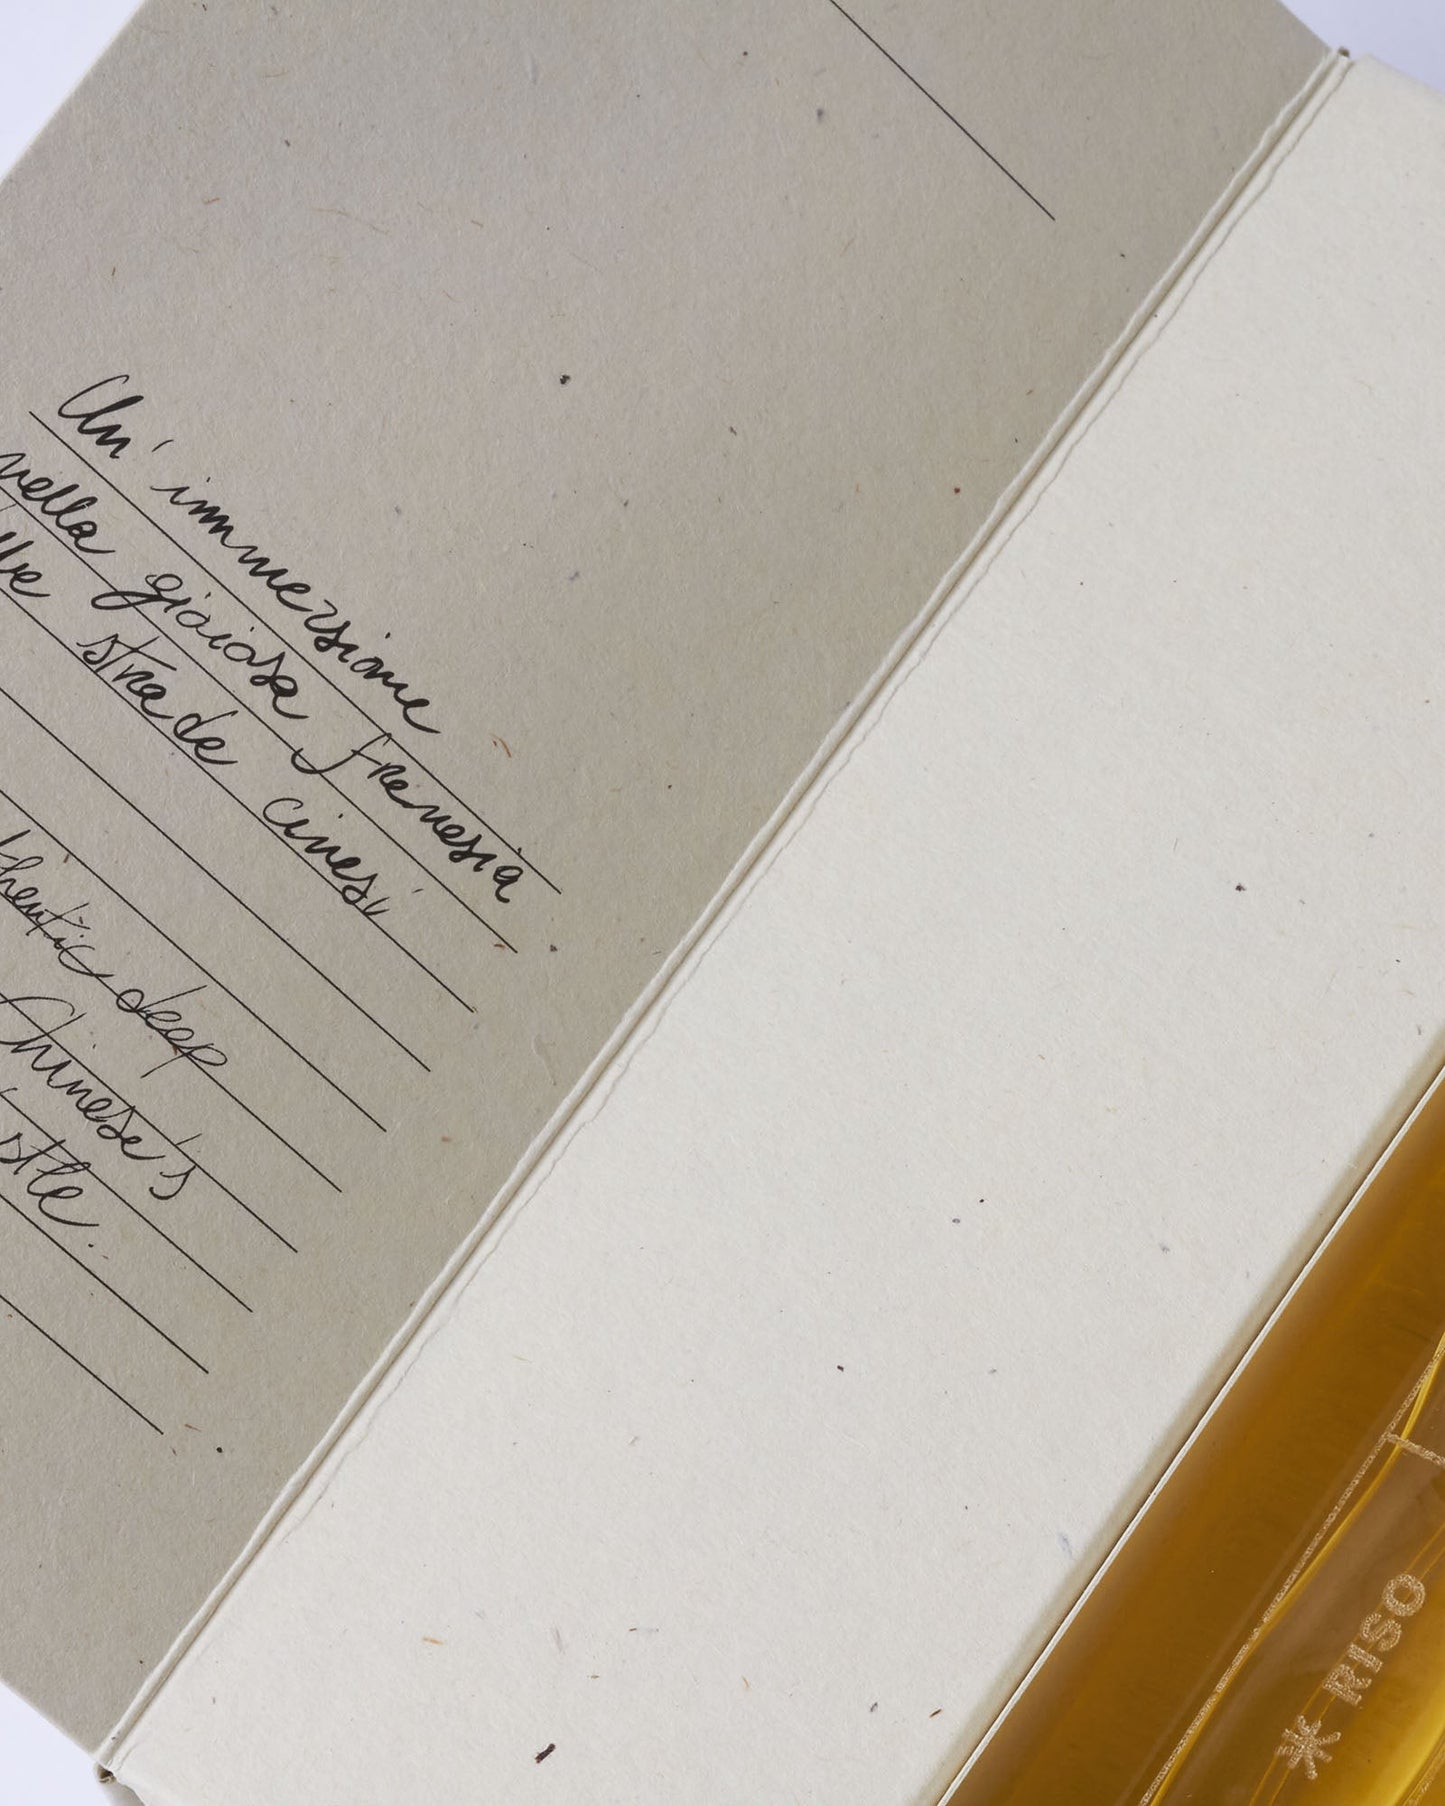 Un' immersione
nella gioiosa frenesia
delle strade cinesi
deep
Chinese's
米 RISO